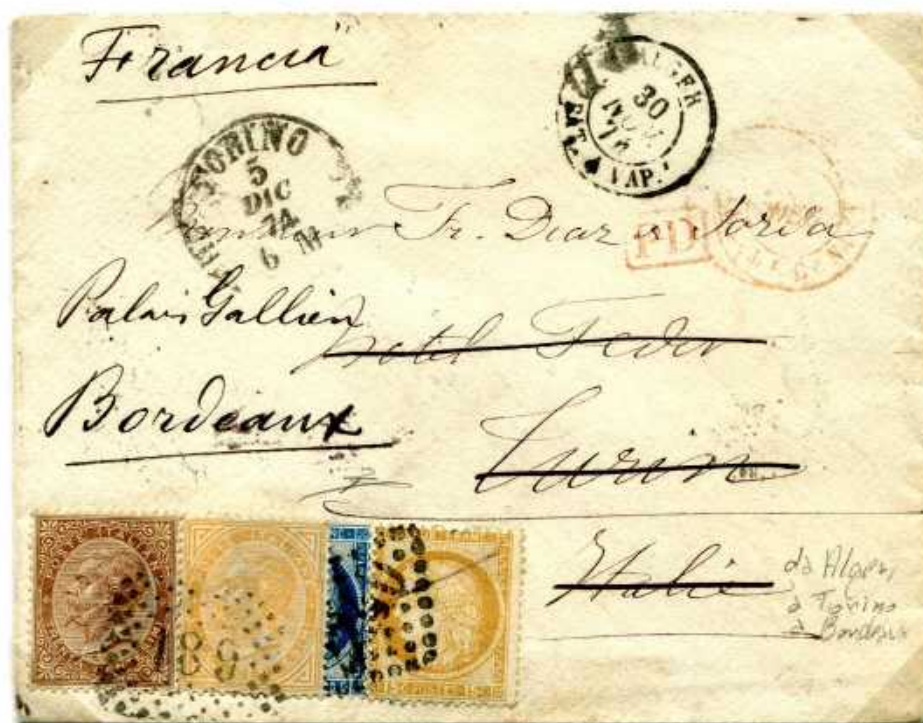 Francia
ALGER
30
NOV.
BAT. A VAP.
TORINO
5
DIC
74
6 M
Monsieur Fr. Diaz
PD
Palais Gallien
Hotel Feder
Bordeaux
Turin
Italie
da Alger,
a Torino
a Bordeaux
POSTE ITALIANE
189